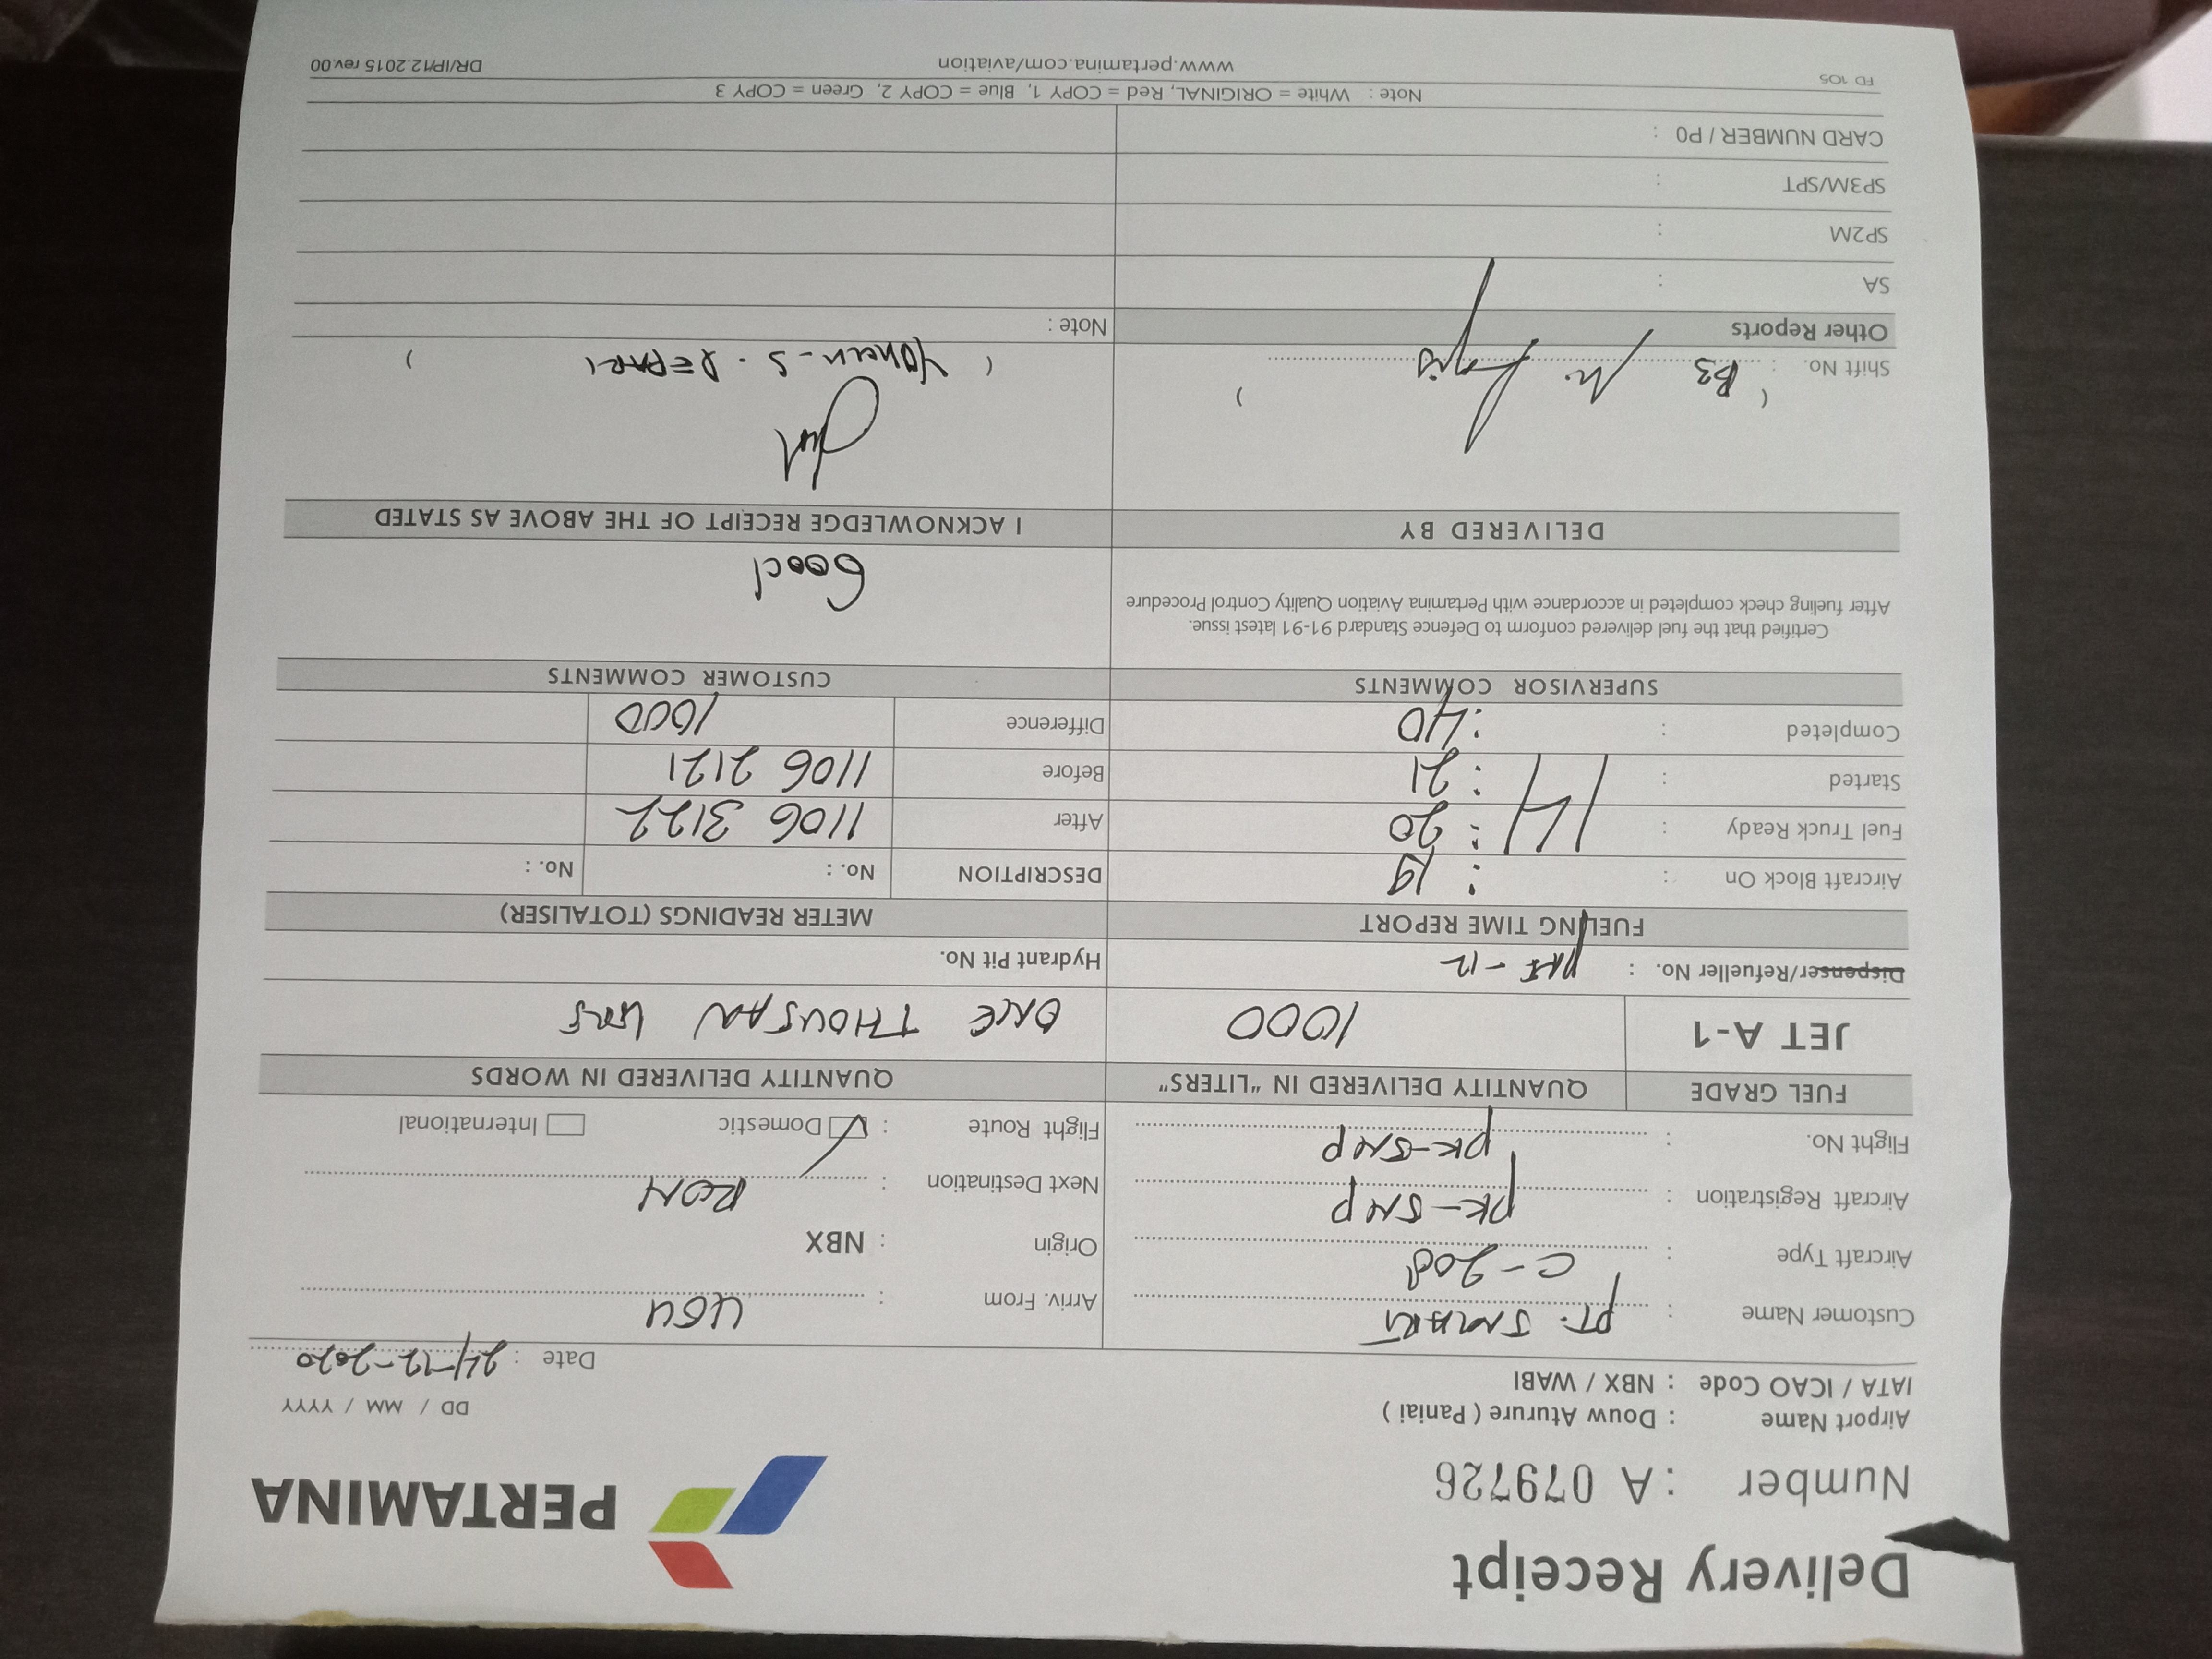 Delivery Receipt
PERTAMINA
Number : A 079726
Airport Name : Douw Aturure ( Paniai )
DD / MM / YYYY
IATA / ICAO Code : NBX / WABI
Date : 24-12-2020
Customer Name : PT. SMART
Arriv. From : UGU
Aircraft Type : C-208
Origin : NBX
Aircraft Registration : PK-SNP
Next Destination : RON
Flight No. : PK-SNP
Flight Route : Domestic International
FUEL GRADE QUANTITY DELIVERED IN "LITERS" QUANTITY DELIVERED IN WORDS
JET A-1 1000 ONE THOUSAN
Dispenser/Refueller No. : Hydrant Pit No.
FUELING TIME REPORT METER READINGS (TOTALISER)
Aircraft Block On : : 19 DESCRIPTION No. : No. :
Fuel Truck Ready : 14 : 20 After 1106 3122
Started : : 21 Before 1106 2121
Completed : : 40 Difference 1000
SUPERVISOR COMMENTS CUSTOMER COMMENTS
Certified that the fuel delivered conform to Defence Standard 91-91 latest issue.
After fueling check completed in accordance with Pertamina Aviation Quality Control Procedure
Good
DELIVERED BY I ACKNOWLEDGE RECEIPT OF THE ABOVE AS STATED
( )
Shift No. : B3
Other Reports Note :
SA :
SP2M :
SP3M/SPT :
CARD NUMBER / P0 :
Note : White = ORIGINAL, Red = COPY 1, Blue = COPY 2, Green = COPY 3
FD 105 www.pertamina.com/aviation DR/IP/12.2015 rev.00